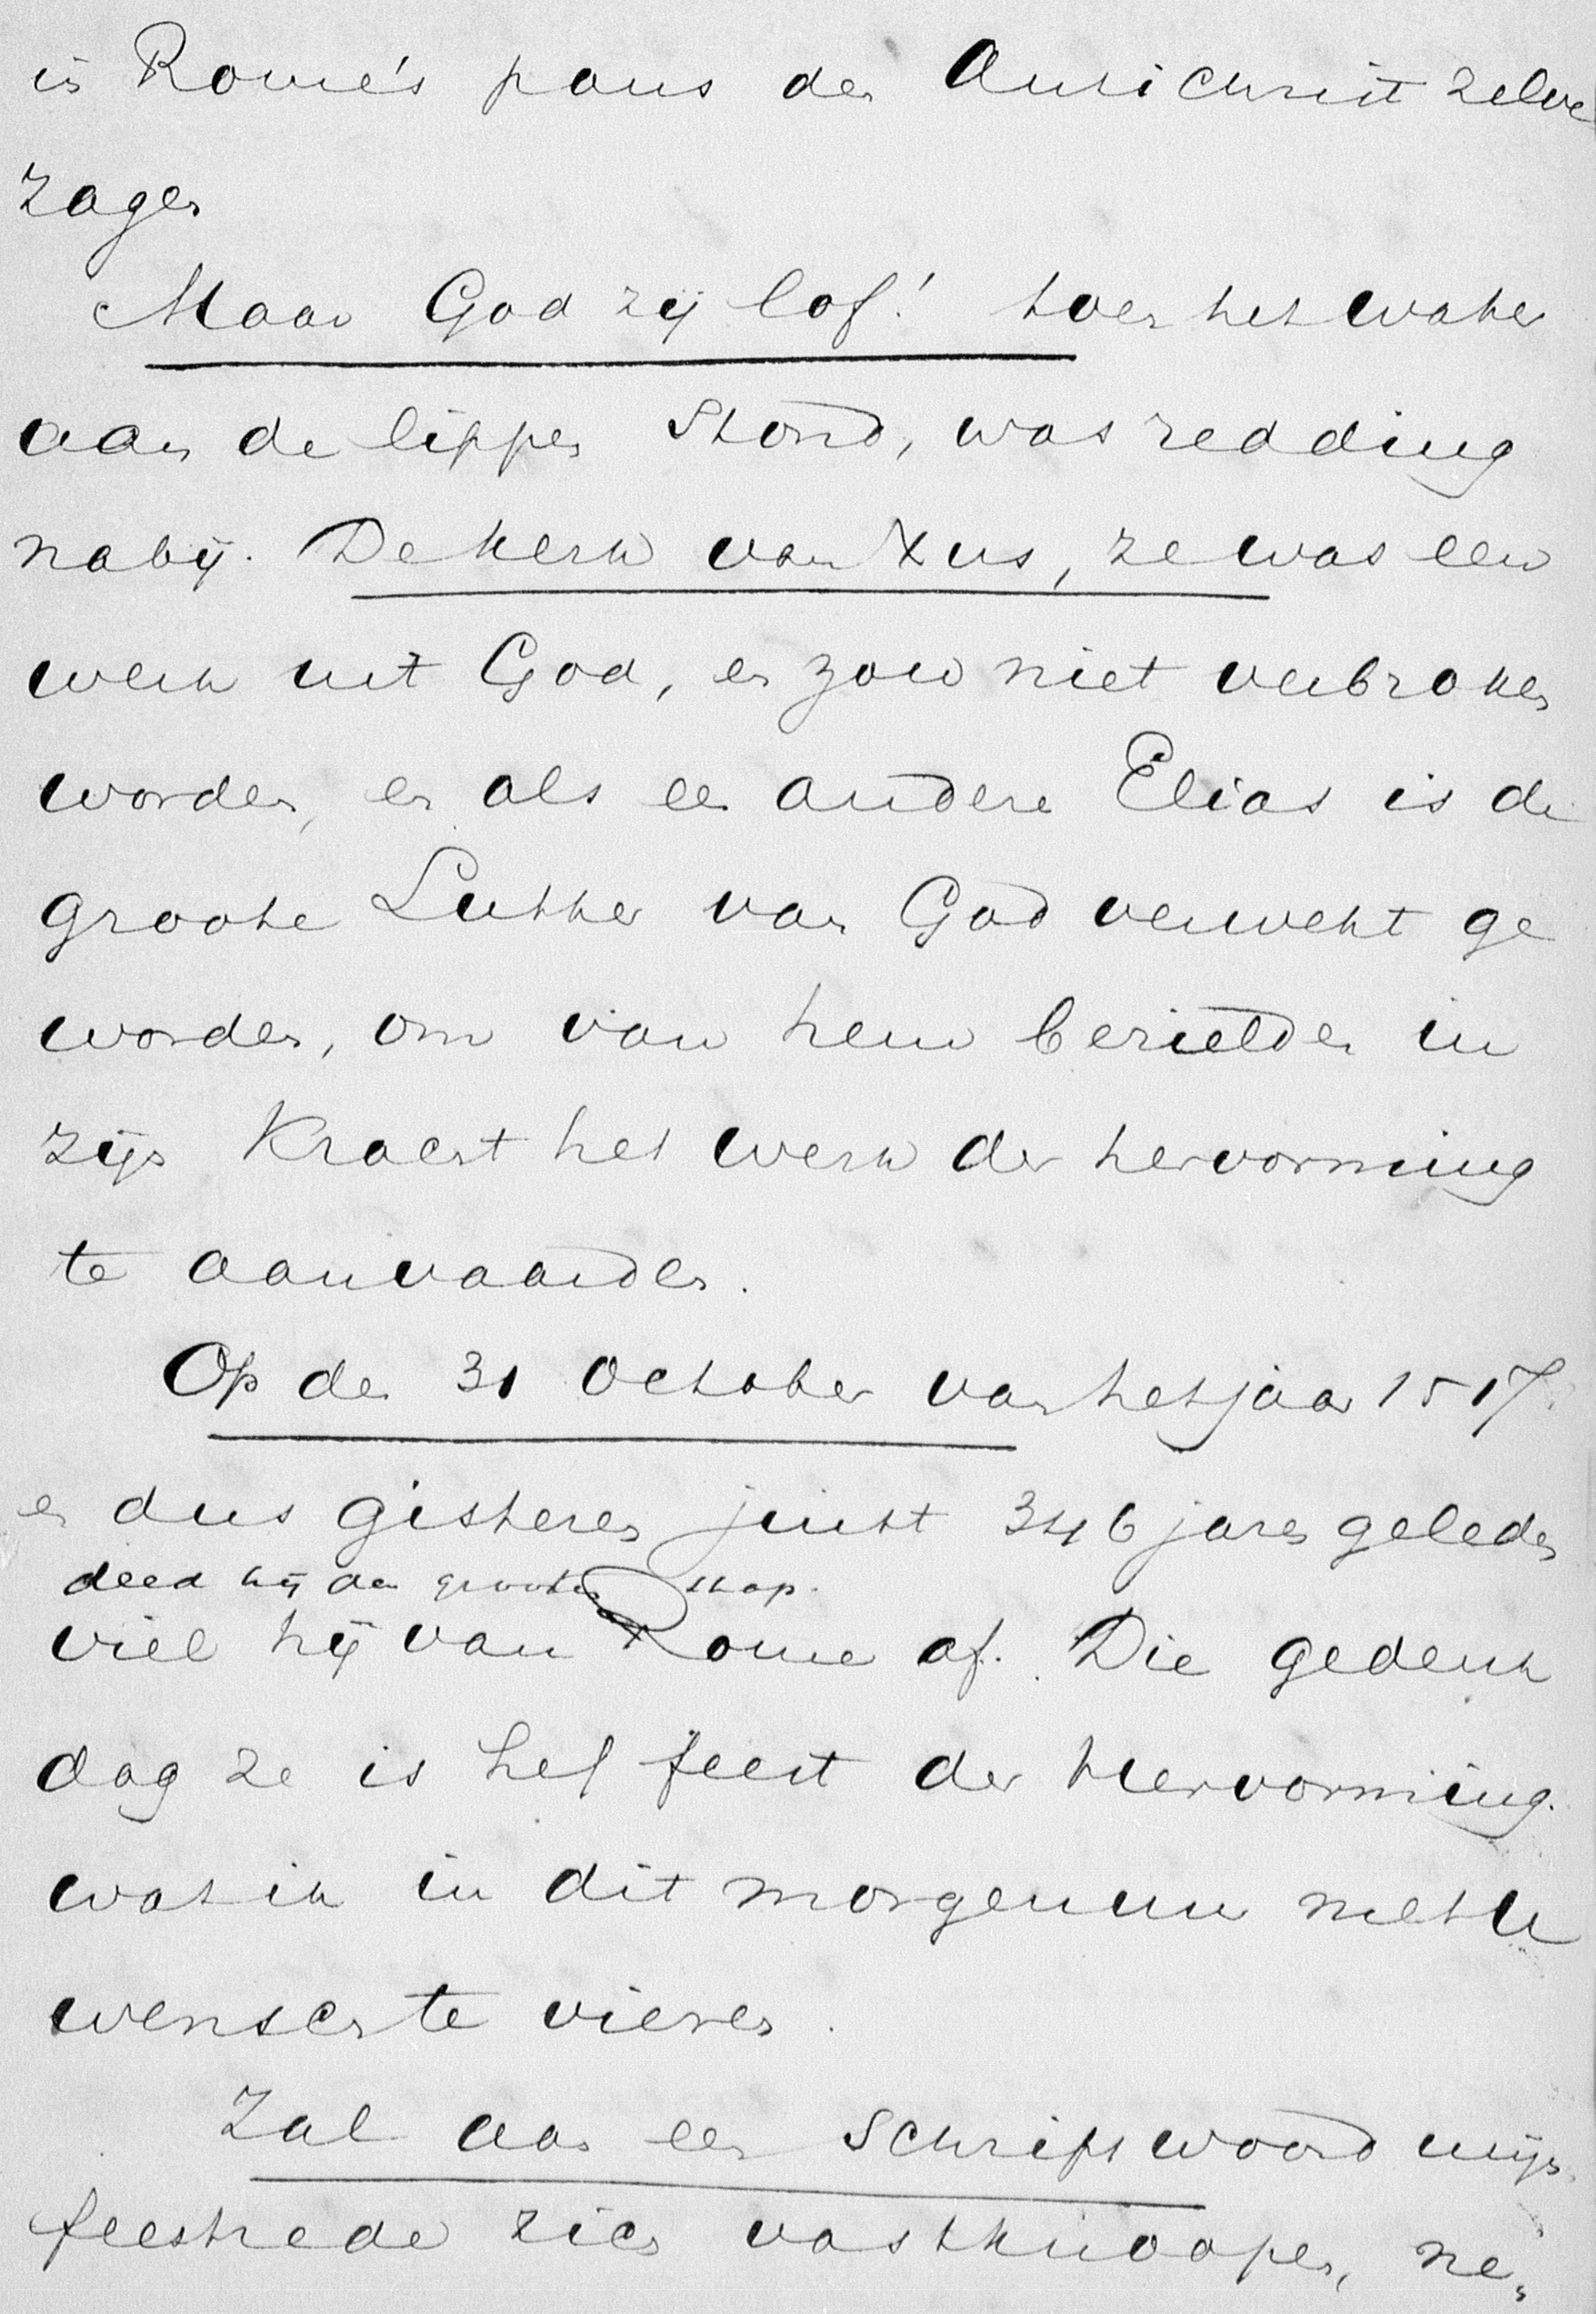 in Rome's paus den Antichrist zelve
zagen
Maar God zij lof! toen het water
aan de lippen stond, was redding
nabij. De kerk van Xus, ze was een
werk uit God, en zou niet verbroken
worden, en als een andere Elias is de
groote Luther van God verwekt ge
worden, om van hem bezield en in
zijn kracht het werk der hervorming
te aanvaarden.
Op den 31 October van het jaar 1517.
en dus gisteren juist 346 jaren geleden
deed hij den grooten stap.
viel hij van Rome af. Die gedenk
dag ze is het feest der Hervorming.
wat ik in dit morgenuur met U
wensch te vieren.
Zal aan een Schriftwoord mijn
feestrede zich vastknoopen, ne,